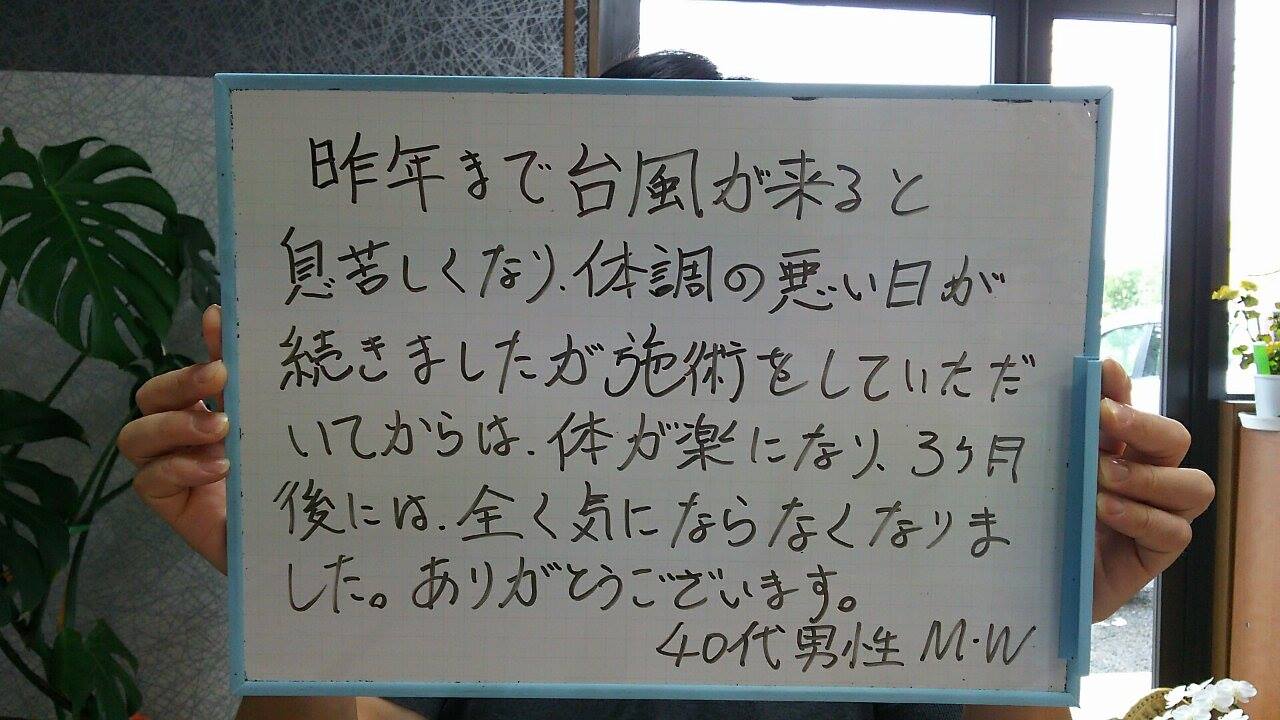 昨年まで台風が来ると
息苦しくなり、体調の悪い日が
続きましたが施術をしていただ
いてからは、体が楽になり、3ヶ月
後には、全く気にならなくなりま
した。ありがとうございます。
40代男性 M・W